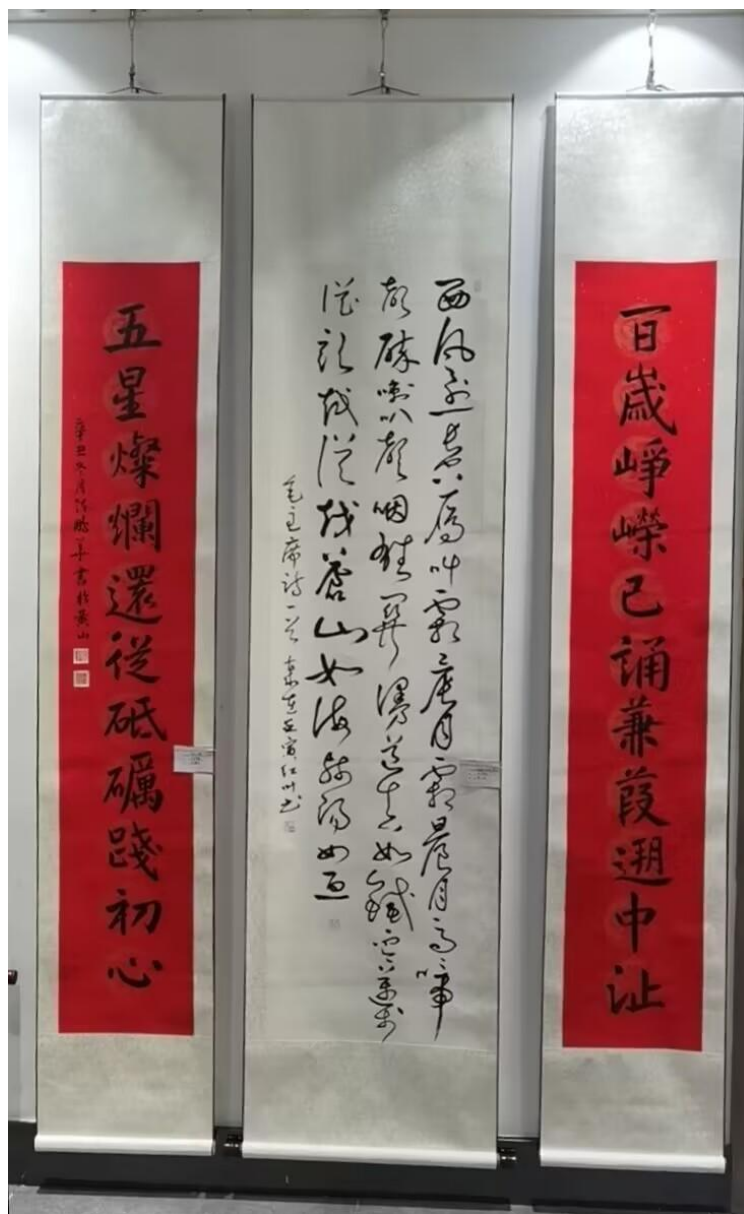 百歲崢嶸已誦蒹葭遡中沚
西風烈長空雁叫霜晨月霜晨月馬啼
聲碎喇叭聲咽雄關漫道真如鐵而今邁步
從頭越從越蒼山如海殘陽如血
毛主席詩一首 歲在壬寅
五星燦爛還從砥礪踐初心
辛丑冬月 書於黃山